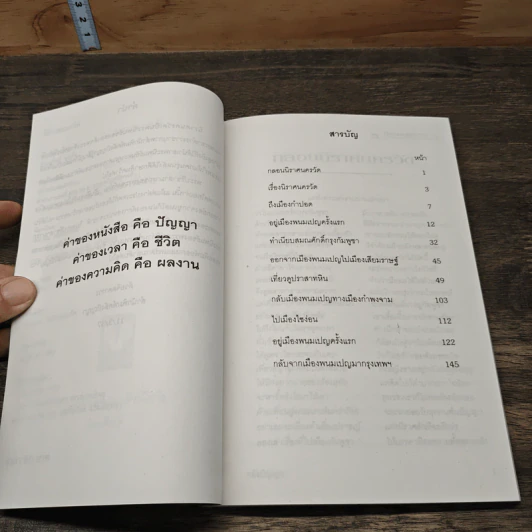 ค่าของหนังสือ คือ ปัญญา
ค่าของเวลา คือ ชีวิต
ค่าของความคิด คือ ผลงาน
สารบัญ
หน้า
กลอนนิราศนครวัด 1
เรื่องนิราศนครวัด 3
ถึงเมืองกำปอด 7
อยู่เมืองพนมเปญครั้งแรก 12
ทำเนียบสมณศักดิ์กรุงกัมพูชา 32
ออกจากเมืองพนมเปญไปเมืองเสียมราษฐ์ 45
เที่ยวดูปราสาทหิน 49
กลับเมืองพนมเปญทางเมืองกำพงจาม 103
ไปเมืองไซ่ง่อน 112
อยู่เมืองพนมเปญครั้งแรก 122
กลับจากเมืองพนมเปญมากรุงเทพฯ 145
3
2
1